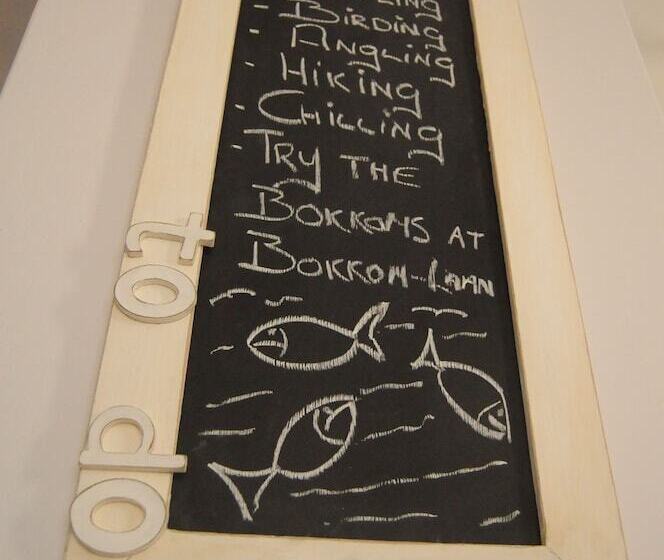 - Birding
- Angling
- Hiking
- Chilling
- Try the
Bokkoms at
Bokkom-Laan
to do